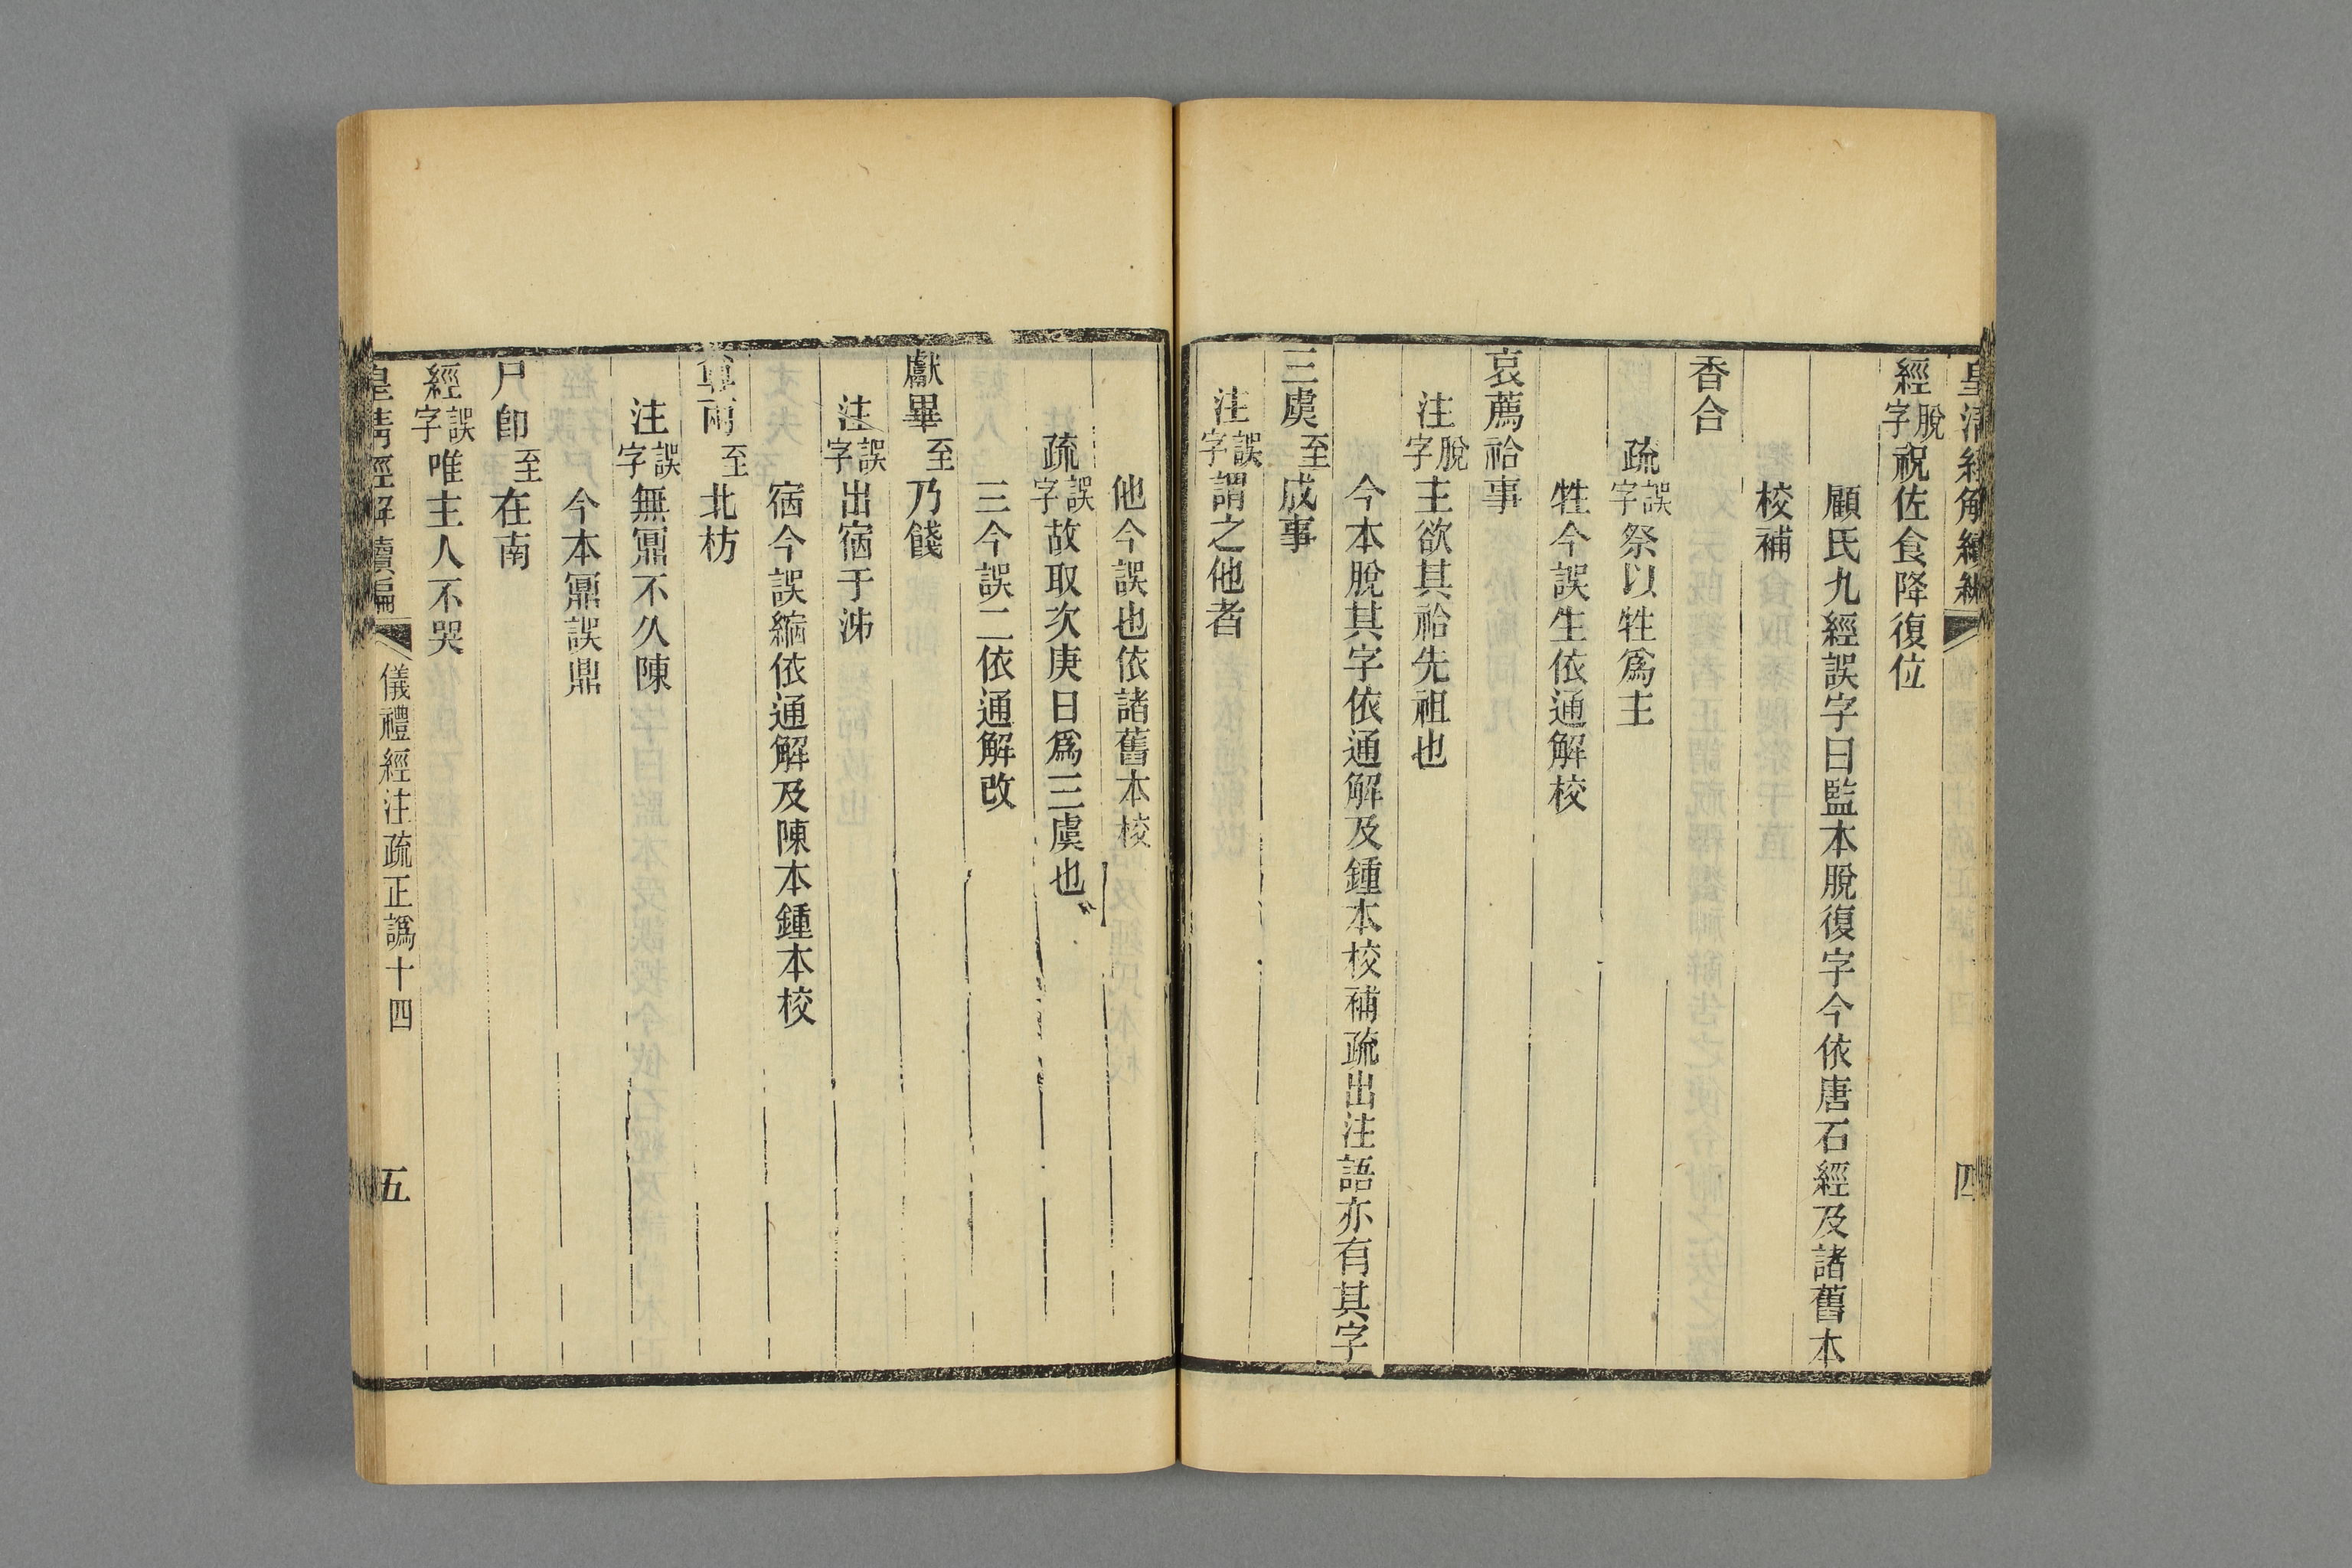 皇清經解續編
四
經脫字祝佐食降復位
顧氏九經誤字曰監本脫復字今依唐石經及諸舊本
校補
香合
疏誤字祭以牲爲主
牲今誤生依通解校
哀薦祫事
注脫字主欲其祫先祖也
今本脫其字依通解及鍾本校補疏出注語亦有其字
三虞至成事
注誤字謂之他者
他今誤也依諸舊本校
疏誤字故取次庚日爲三虞也
三今誤二依通解改
獻畢至乃餞
注誤字出宿于泲
宿今誤縮依通解及陳本鍾本校
尊兩至北枋
注誤字無鼏不久陳
今本鼏誤鼎
尸卽至在南
經誤字唯主人不哭
皇清經解續編
儀禮經注疏正譌十四
五